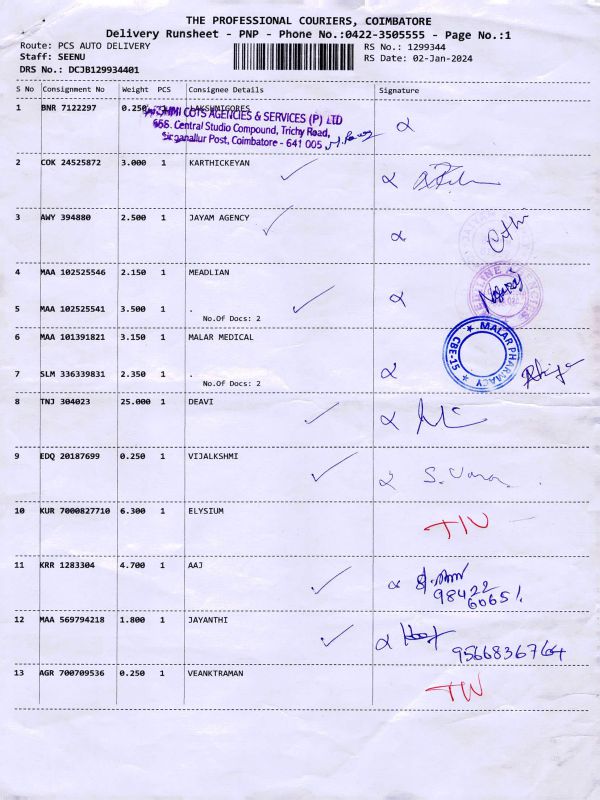 THE PROFESSIONAL COURIERS, COIMBATORE
Delivery Runsheet - PNP - Phone No.:0422-3505555 - Page No.:1
Route: PCS AUTO DELIVERY RS No.: 1299344
Staff: SEENU RS Date: 02-Jan-2024
DRS No.: DCJB129934401
S No Consignment No Weight PCS Consignee Details Signature
1 BNR 7122297 0.250 LAKSHMIGORES
COTS AGENCIES & SERVICES (P) LTD
656. Central Studio Compound, Trichy Road,
Singanallur Post, Coimbatore - 641 005
2 COK 24525872 3.000 1 KARTHICKEYAN
3 AWY 394880 2.500 1 JAYAM AGENCY
4 MAA 102525546 2.150 1 MEADLIAN
5 MAA 102525541 3.500 1 .
No.Of Docs: 2
6 MAA 101391821 3.150 1 MALAR MEDICAL
MALAR PHARMACY
CBE-15
7 SLM 336339831 2.350 1 .
No.Of Docs: 2
8 TNJ 304023 25.000 1 DEAVI
9 EDQ 20187699 0.250 1 VIJALKSHMI
10 KUR 7000827710 6.300 1 ELYSIUM
11 KRR 1283304 4.700 1 AAJ
98422
60651
12 MAA 569794218 1.800 1 JAYANTHI
9566836764
13 AGR 700709536 0.250 1 VEANKTRAMAN